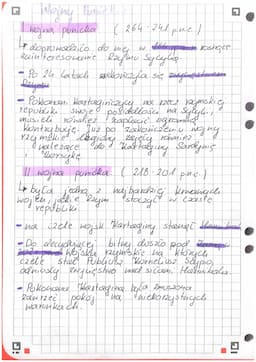 Wojny Punickie
I wojna punicka (264-241 p.n.e.)
↳ doprowadziło do niej w rosnące
zainteresowanie Rzymu Sycylią.
- Po 24 latach zakończyła się
- Pokonani Kartagińczycy na rzecz rzymskiej
republiki swoje posiadłości na Sycylii,
musieli również zapłacić ogromną
kontrybucję. Już po zakończeniu wojny
rzymskie legiony zajęły również
należące do Kartaginy Sardynię
i Korsykę.
II wojna punicka (218-201 p.n.e.)
↳ była jedną z najbardziej krwawych
wojen, jakie Rzym stoczył w czasie
republiki.
- na czele wojsk Kartaginy stanął
- Do decydującej bitwy doszło pod
Wojska rzymskie na których
czele stał Publiusz Korneliusz Scypio,
odniosły zwycięstwo nad siłami Hannibala.
- Pokonana Kartagina była zmuszona
zawrzeć pokój na niekorzystnych
warunkach.